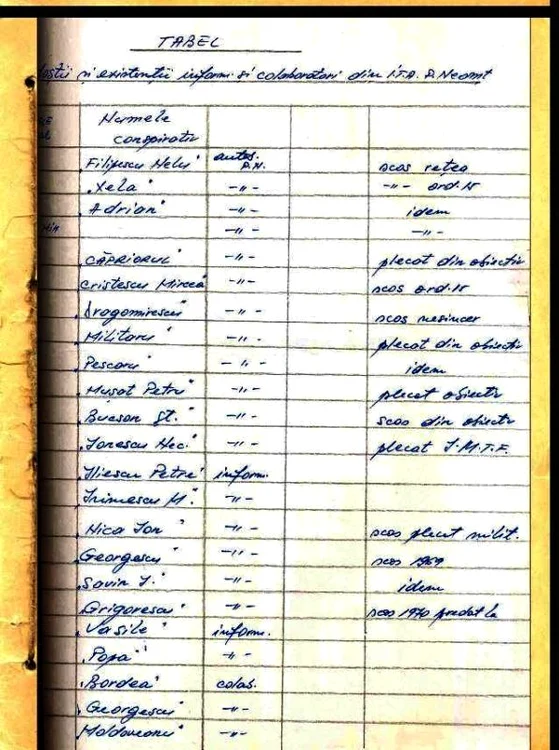 TABEL
și existenții inform. și colaboratori din I.T.A. P. Neamț
Numele
conspirativ
„Filipescu Nelu” autos. P.N. scos rețea
„Xela” -"- -"- ord.
„Adrian” -"- idem
-"- -"-
„CĂPRIORUL” -"- plecat din obiectiv
„Cristescu Mircea -"- scos ord.
„Dragomirescu” -"- scos nesincer
„Militaru” -"- plecat din obiectiv
„Pescaru” -"- idem
„Mușat Petru” -"- plecat obiectiv
„Bucson Șt.” -"- scos din obiectiv
„Ionescu Nec.” -"- plecat I.M.T.F.
„Iliescu Petre” inform.
„Irimescu M.” -"-
„Nica Ion” -"- scos plecat milit.
„Georgescu” -"- scos 1969
„Savin I.” -"- idem
„Grigorescu” -"- scos 1970 predat la
„Vasile” inform.
„Popa” -"-
„Bordea” colab.
„Georgescu” -"-
„Moldoveanu” -"-